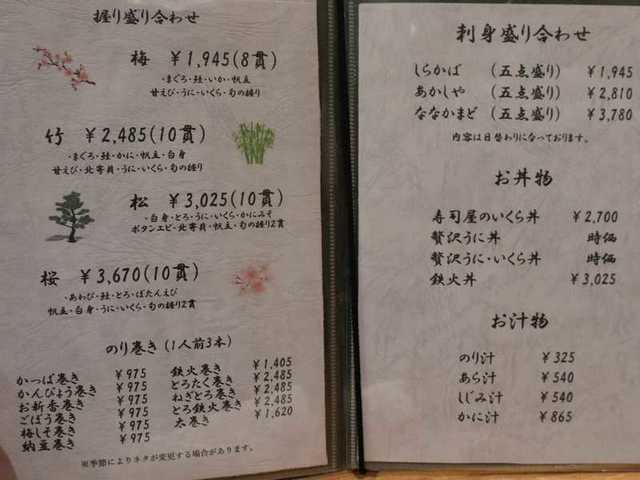 握り盛り合わせ
梅 ￥1,945(8貫)
・まぐろ・鮭・いか・帆立
甘えび・うに・いくら・旬の握り
竹 ￥2,485(10貫)
・まぐろ・鮭・かに・帆立・白身
甘えび・北寄貝・うに・いくら・旬の握り
松 ￥3,025(10貫)
・白身・とろ・うに・いくら・かにみそ
ボタンエビ・北寄貝・帆立・旬の握り2貫
桜 ￥3,670(10貫)
・あわび・鮭・とろ・ぼたんえび
帆立・白身・うに・いくら・旬の握り2貫
のり巻き (1人前3本)
かっぱ巻き ￥975
かんぴょう巻き ￥975
お新香巻き ￥975
ごぼう巻き ￥975
梅しそ巻き ￥975
納豆巻き ￥975
鉄火巻き ￥1,405
とろたく巻き ￥2,485
ねぎとろ巻き ￥2,485
とろ鉄火巻き ￥2,485
太巻き ￥1,620
※季節によりネタが変更する場合があります。
刺身盛り合わせ
しらかば (五点盛り) ￥1,945
あかしや (五点盛り) ￥2,810
ななかまど (五点盛り) ￥3,780
内容は日替わりになっております。
お丼物
寿司屋のいくら丼 ￥2,700
贅沢うに丼 時価
贅沢うに・いくら丼 時価
鉄火丼 ￥3,025
お汁物
のり汁 ￥325
あら汁 ￥540
しじみ汁 ￥540
かに汁 ￥865